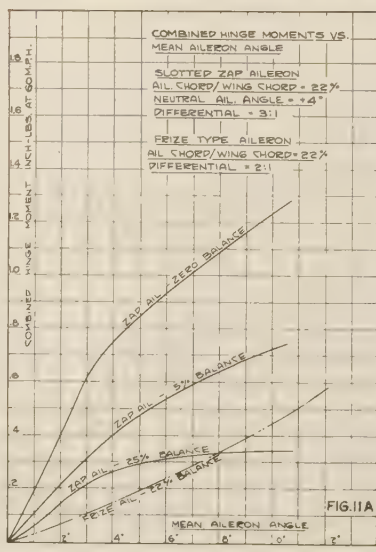 COMBINED HINGE MOMENTS VS.
MEAN AILERON ANGLE
SLOTTED ZAP AILERON
AIL. CHORD/WING CHORD = 22%
NEUTRAL AIL. ANGLE = +4°
DIFFERENTIAL = 3:1
FRIZE TYPE AILERON
AIL CHORD/WING CHORD = 22%
DIFFERENTIAL = 2:1
COMBINED HINGE MOMENT INCH-LBS. AT 60 M.P.H.
1.8
1.6
1.4
1.2
1.0
.8
.6
.4
.2
ZAP AIL - ZERO BALANCE
ZAP AIL - 5% BALANCE
ZAP AIL - 25% BALANCE
FRIZE AIL. - 22% BALANCE
2° 4° 6° 8° 10° 12°
MEAN AILERON ANGLE
FIG. 11A